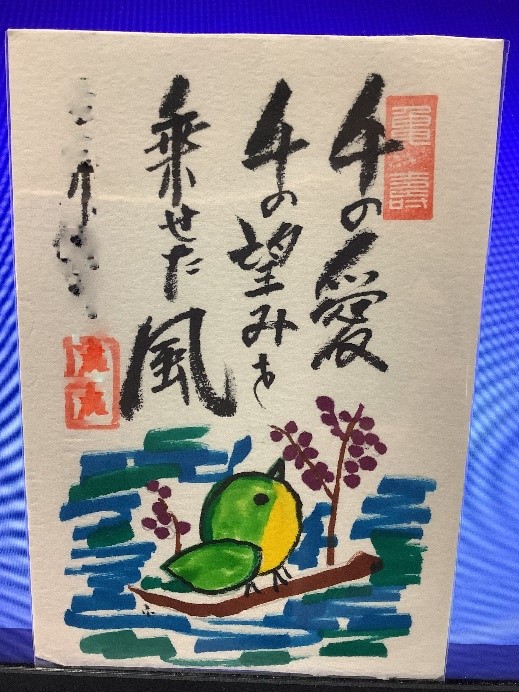 千の愛
千の望みを
乗せた風